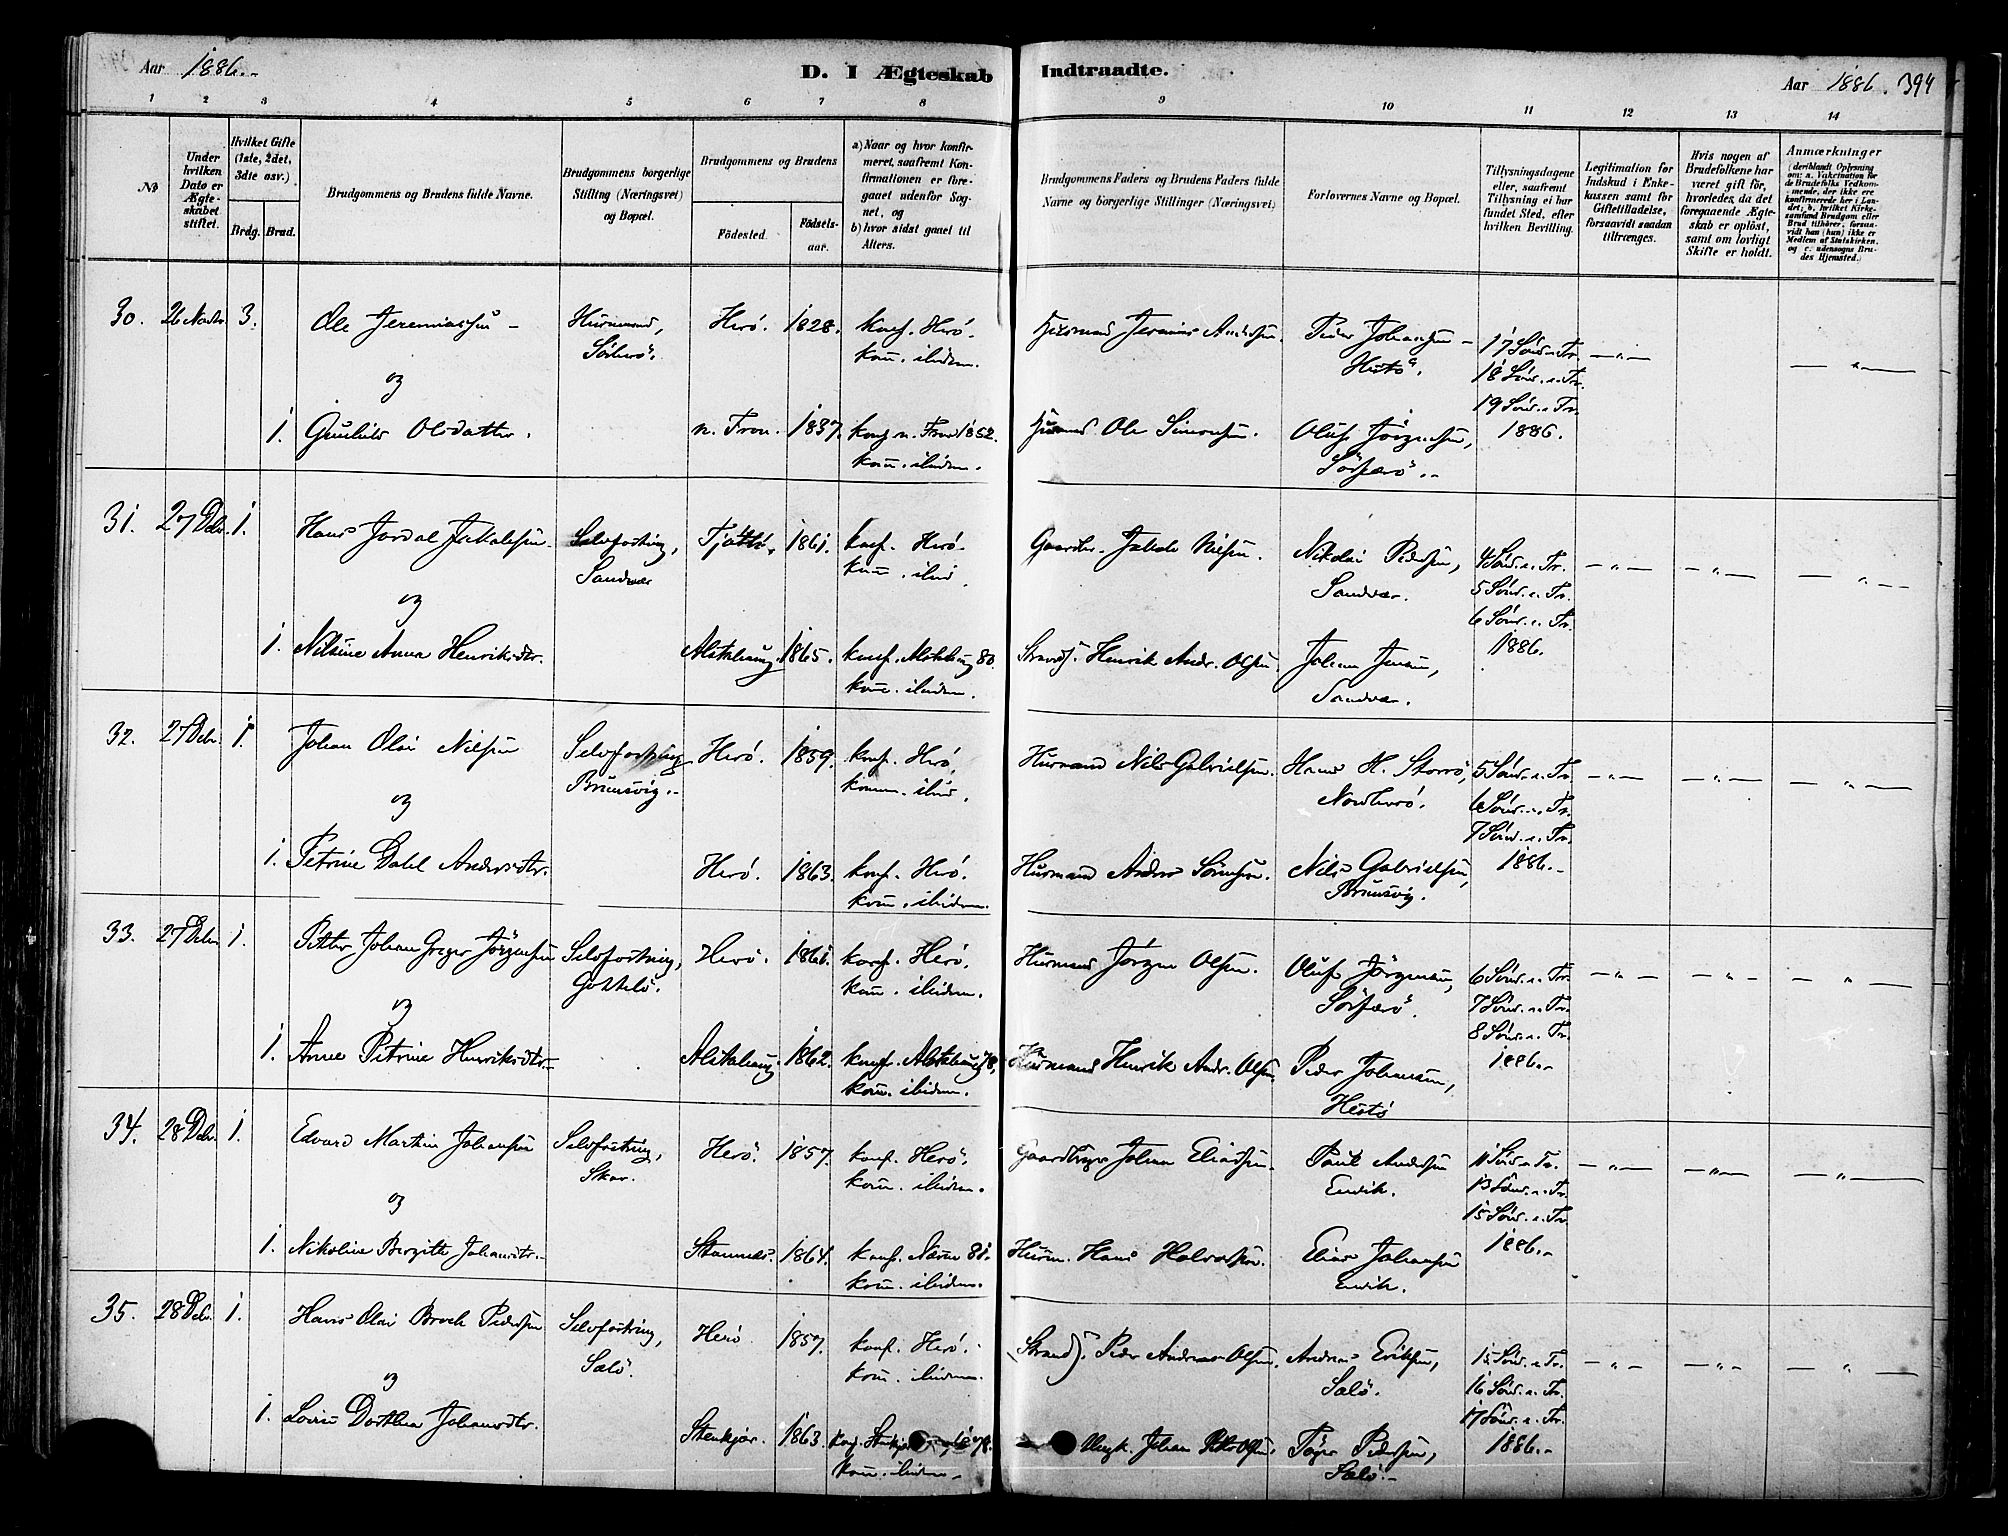 Aar 1886.-
D. I Ægteskab Indtraadte.
Aar 1886. 394
1 2 3 4 5 6 7 8 9 10 11 12 13 14
No
Under hvilken Dato er Ægteskabet stiftet.
Hvilket Gifte (1ste, 2det, 3die osv.)
Brdg. Brud.
Brudgommens og Brudens fulde Navne.
Brudgommens borgerlige Stilling (Næringsvei) og Bopæl.
Brudgommens og Brudens
Födested. Födselsaar.
a) Naar og hvor konfirmeret, saafremt Konfirmationen er foregaaet udenfor Sognet, og
b) hvor sidst gaaet til Alters.
Brudgommens Faders og Brudens Faders fulde Navne og borgerlige Stillinger (Næringsvei)
Forlovernes Navne og Bopæl.
Tillysningsdagene eller, saafremt Tillysning ei har fundet Sted, efter hvilken Bevilling.
Legitimation for Indskud i Enkekassen samt for Giftetilladelse, forsaavidt saadan tiltrænges.
Hvis nogen af Brudefolkene har været gift för, hvorledes da det foregaaende Ægteskab er oplöst, samt om lovligt Skifte er holdt.
Anmærkninger
(deriblandt Oplysning om: a. Vakcination för de Brudefolks Vedkommende, der ikke ere konfirmerede her i Landet; b. hvilket Kirkesamfund Brudgom eller Brud tilhörer, forsaavidt han (hun) ikke er Medlem af Statskirken, og c. udensogns Brudes Hjemsted.)
30. 26 Novbr. 3. Ole Jeremiassen - Husmand, Sörherö. Herö. 1828. konf. Herö. kom. ibidem. Husmand Jeremias Andersen. Peder Johansen - Hestö. 17 Sönd. e. Tr. 18 Sönd. e. Tr. 19 Sönd. e. Tr. 1886.
og
1. Gunhild Olsdatter. n. Fron. 1837. konf. n. Fron 1852. kom. ibidem. Husmand Ole Simonsen. Oluf Jörgensen, Sörherö.
31. 27 Debr. 1. Hans Jordal Jakobsen. Selvfostring, Sandvær Tjöttö. 1861. konf. Herö. kom. ibid. Gaardbr. Jakob Nilsen. Nikolai Pedersen, Sandvær. 4 Sönd. e. Tr. 5 Sönd. e. Tr. 6 Sönd. e. Tr. 1886.
og
1. Nilsine Anna Henriksdtr. Alstahaug 1865. konf. Alstahaug 80. kom. ibidem. Strands. Henrik Andr. Olsen. Johan Jensen, Sandvær.
32. 27 Debr. 1. Johan Olai Nilsen Selvfostring Brunsvig. Herö. 1859. konf. Herö, komm. ibid. Husmand Nils Gabrielsen. Hans H. Storrö, Nordherö. 5 Sönd. e. Tr. 6 Sönd. e. Tr. 7 Sönd. e. Tr. 1886.-
og
1. Petrine Dahl Andersdtr. Herö. 1863. konf. Herö. kom. ibidem. Husmand Anders Sörensen. Nils Gabrielsen, Brunsvig.
33. 27 Debr. 1. Petter Johan Greger Jörgensen Selvfostring, Gottelö. Herö. 1861. konf. Herö. kom. ibidem. Husmand Jörgen Olsen. Oluf Jörgensen, Sörherö. 6 Sönd. e. Tr. 7 Sönd. e. Tr. 8 Sönd. e. Tr. 1886.-
og
1. Anne Petrine Henriksdtr.- Alstahaug. 1862. konf. Alstahaug 78. kom. ibidem. Husmand Henrik Andr. Olsen. Peder Johansen, Hestö
34. 28 Debr. 1. Edvard Martin Johansen Selvfostring, Skar. Herö. 1857. konf. Herö. kom. ibidem. Gaardbruger Johan Eliassen. Paul Andersen Envik. 11 Sönd. e. Tr. 13 Sönd. e. Tr. 15 Sönd. e. Tr. 1886.-
og
1. Nikoline Bergitte Johansdtr.- Stamnes. 1864. konf. Næsne 81. kom. ibidem. Husm. Hans Halvorsen. Elias Johansen Envik.
35. 28 Debr. 1. Hans Olai Broch Pedersen Selvfostring, Sælö. Herö 1857. konf. Herö. kom. ibidem. (Strands). Peder Andreas Olsen. Andreas Eriksen, Sælö. 15 Sönd. e. Tr. 16 Sönd. e. Tr. 17 Sönd. e. Tr. 1886.-
og
1. Lovise Dorthea Johansdtr. Stenkjær. 1863. konf. Stenkjær 1878. kom. ibidem. Ungk. Johan Olsen. Töger Pedersen, Sælö.-